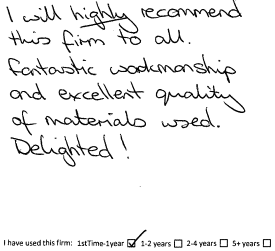 I will highly recommend
this firm to all.
Fantastic workmanship
and excellent quality
of materials used.
Delighted!
I have used this firm: 1stTime-1year ☑ 1-2 years ☐ 2-4 years ☐ 5+ years ☐